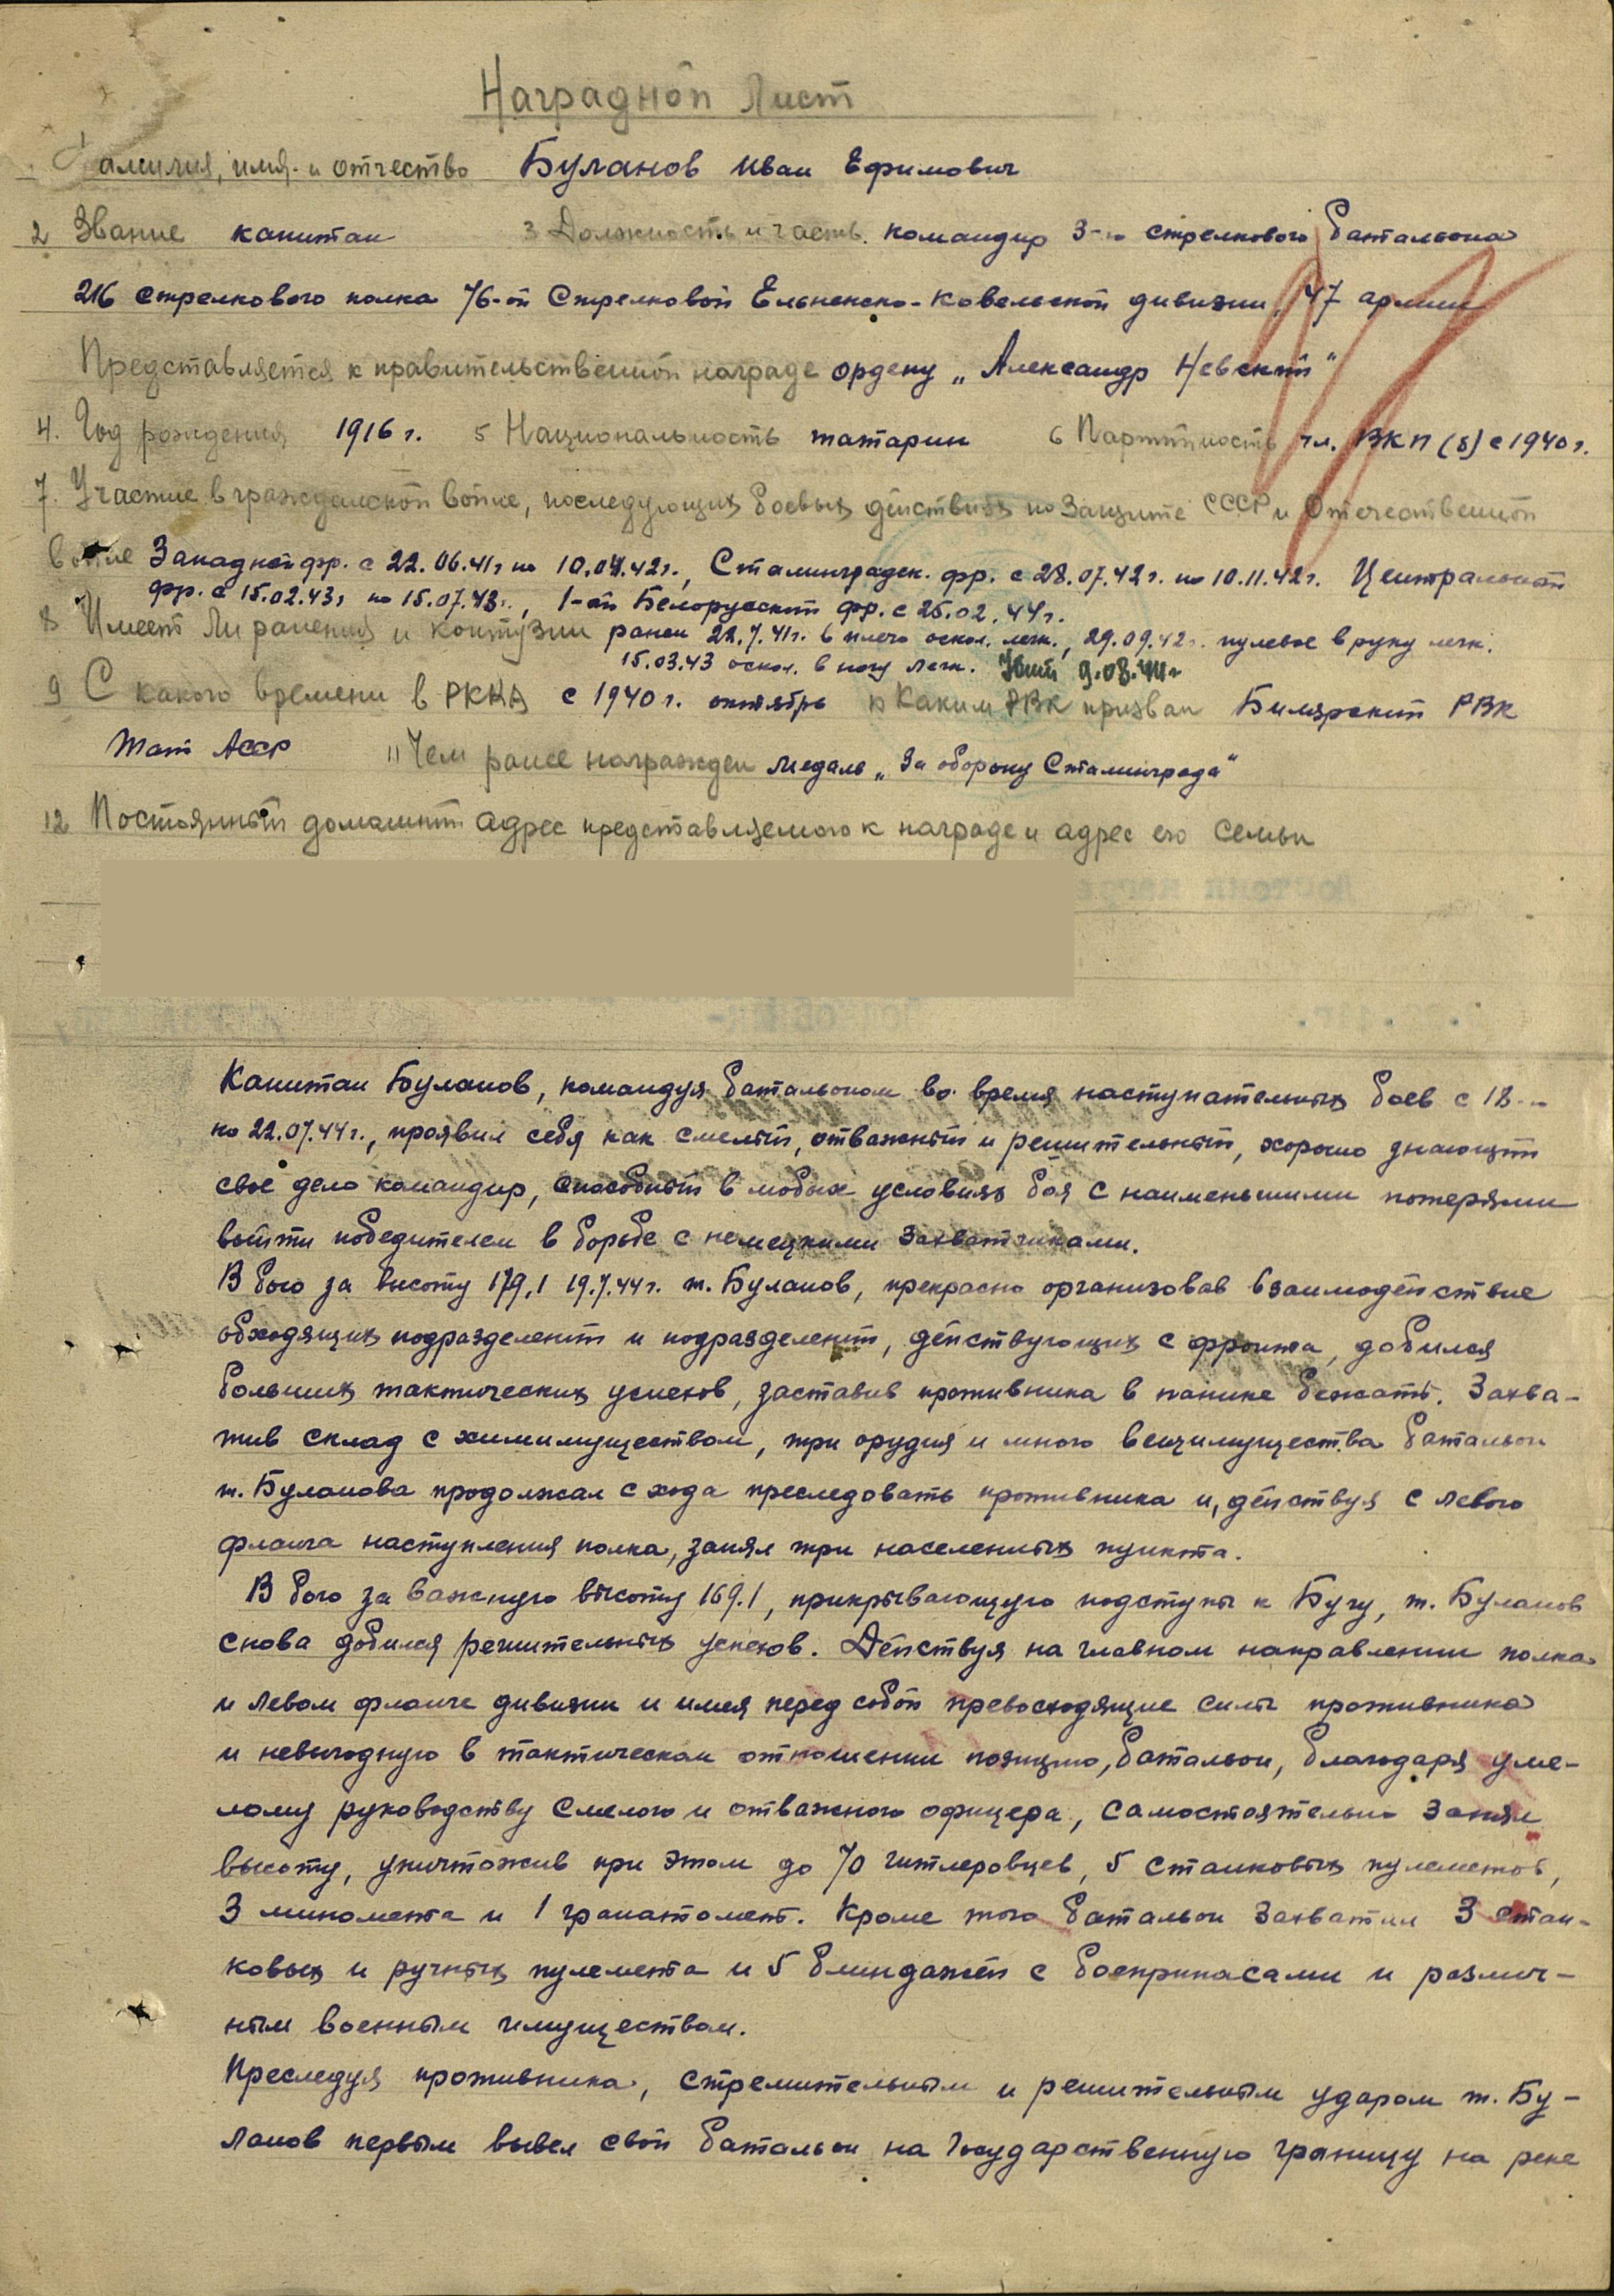 Наградной Лист
1 Фамилия, имя и отчество Буланов Иван Ефимович
2 Звание капитан 3 Должность и часть командир 3-го стрелкового батальона
216 стрелкового полка 76-ой Стрелковой Ельненско-Ковельской дивизии, 47 армии
Представляется к правительственной награде ордену „Александр Невский"
4. Год рождения 1916 г. 5 Национальность татарин 6 Партийность чл. ВКП(б) с 1940 г.
7. Участие в гражданской войне, последующих боевых действиях по защите СССР и Отечественной
войне Западной фр. с 22.06.41г по 10.04.42г., Сталинградск. фр. с 28.07.42г. по 10.11.42г. Центральной
фр. с 15.02.43г по 15.07.43г., 1-ой Белорусский фр. с 25.02.44г.
8 Имеет ли ранения и контузии ранен 22.7.41г. в плечо оскол. легк., 29.09.42г. пулевое в руку легк.
15.03.43 оскол. в ногу легк. Убит 9.08.44г
9 С какого времени в РККА с 1940 г. октябрь 10 Каким РВК призван Билярский РВК
Тат АССР 11 Чем ранее награжден медаль „За оборону Сталинграда"
12 Постоянный домашний адрес представляемого к награде и адрес его семьи
Капитан Буланов, командуя батальоном во время наступательных боев с 18-го
по 22.07.44г., проявил себя как смелый, отважный и решительный, хорошо знающий
свое дело командир, способный в любых условиях боя с наименьшими потерями
выйти победителем в борьбе с немецкими захватчиками.
В бою за высоту 179,1 19.7.44г. т. Буланов, прекрасно организовав взаимодействие
обходящих подразделений и подразделений, действующих с фронта, добился
больших тактических успехов, заставив противника в панике бежать. Захва-
тив склад с химимуществом, три орудия и много вещимущества батальон
т. Буланова продолжал с хода преследовать противника и, действуя с левого
фланга наступления полка, занял три населенных пункта.
В бою за важную высоту 169.1, прикрывающую подступы к Бугу, т. Буланов
снова добился решительных успехов. Действуя на главном направлении полка
и левом фланге дивизии и имея перед собой превосходящие силы противника
и невыгодную в тактическом отношении позицию, батальон, благодаря уме-
лому руководству смелого и отважного офицера, самостоятельно занял
высоту, уничтожив при этом до 70 гитлеровцев, 5 станковых пулеметов,
3 миномета и 1 гранатомет. Кроме того батальон захватил 3 стан-
ковых и ручных пулемета и 5 блиндажей с боеприпасами и различ-
ным военным имуществом.
Преследуя противника, стремительным и решительным ударом т. Бу-
ланов первым вывел свой батальон на Государственную границу на реке